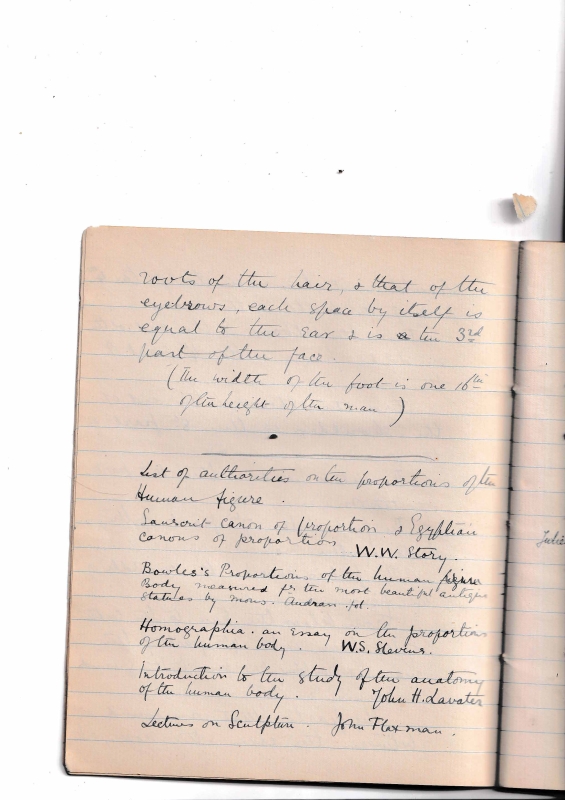 roots of the hair, & that of the
eyebrows, each space by itself is
equal to the Ear & is the 3rd
part of the face.
(The width of the foot is one 16th
of the height of the man)
List of authorities on the proportions of the
Human figure.
Sanscrit canon of proportion & Egyptian
canons of proportion
W.W. Story.
Bowles's Proportions of the human figure
Body measured fr the most beautiful antique
statues by mons. Audran.
Homographia. an Essay on the proportions
of the human body. W.S. Stevens.
Introduction to the study of the anatomy
of the human body. John H. Lavater
Lectures on Sculpture. John Flaxman.